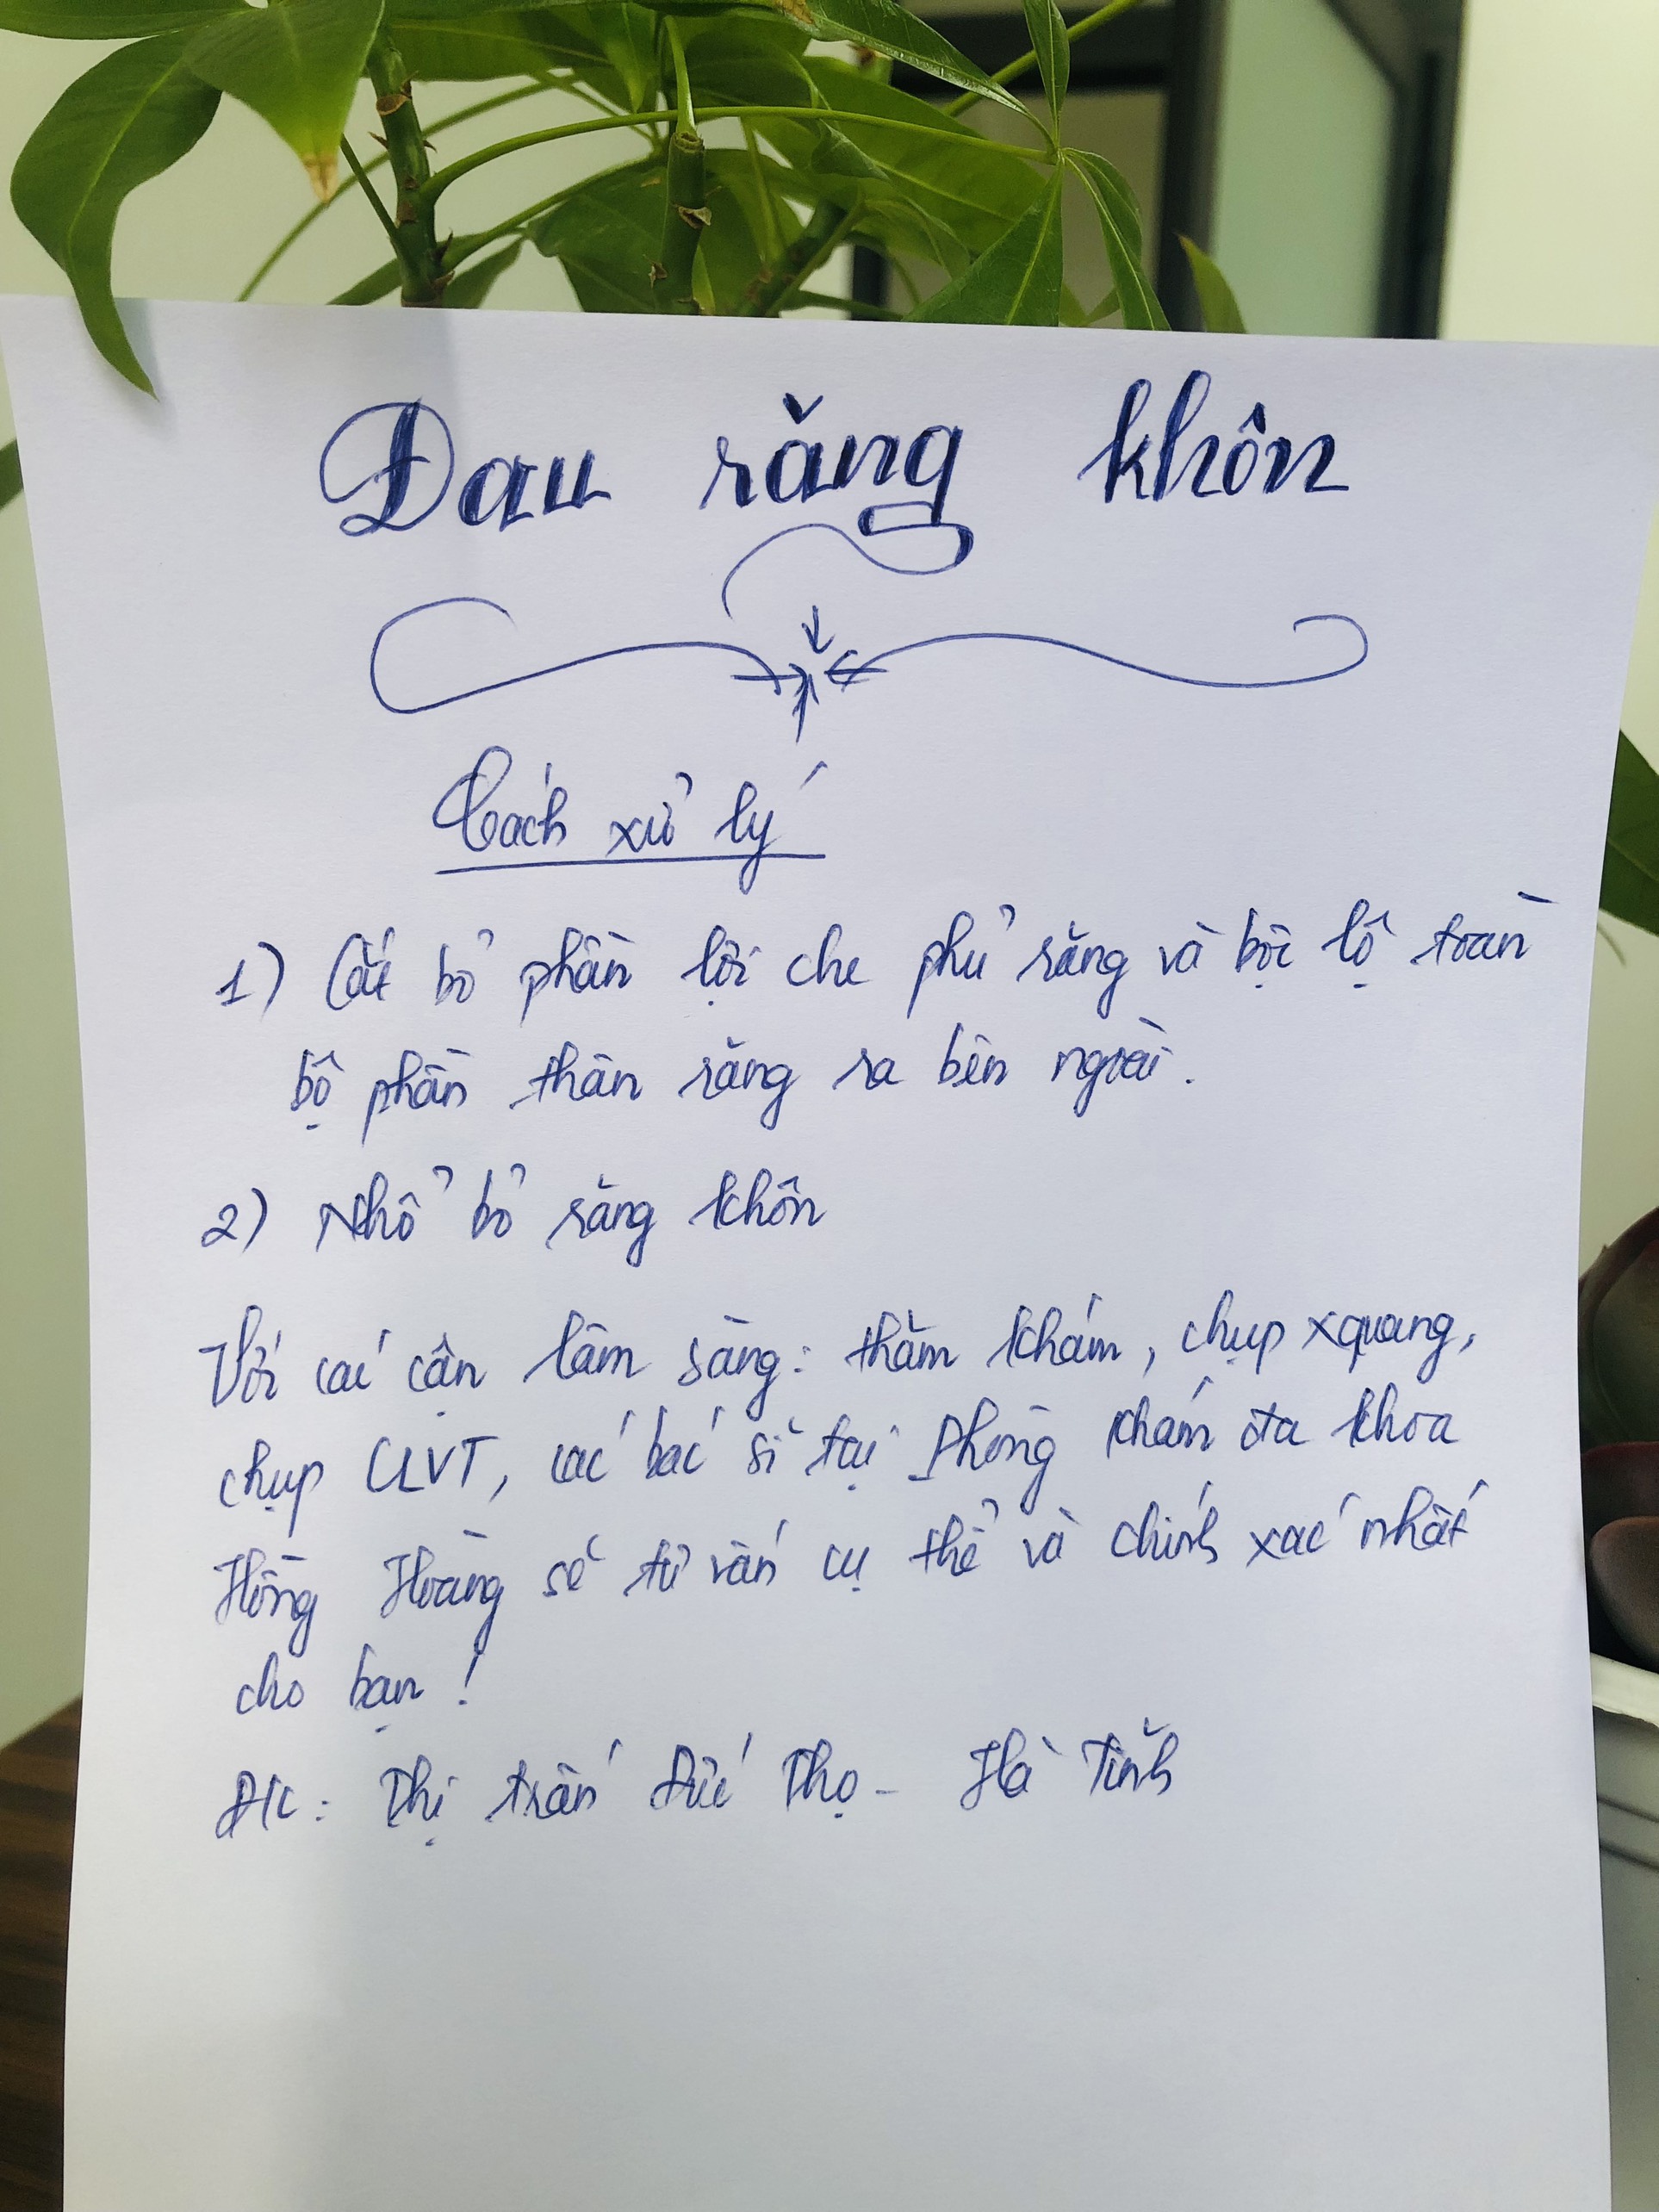 Đau răng khôn
Cách xử lý
1) Cắt bỏ phần lợi che phủ răng và bộc lộ toàn
bộ phần thân răng ra bên ngoài.
2) Nhổ bỏ răng khôn
Với các cận lâm sàng: thăm khám, chụp xquang,
chụp CLVT, các bác sĩ tại Phòng khám đa khoa
Hồng Hoàng sẽ tư vấn cụ thể và chính xác nhất
cho bạn!
Đ/c: Thị trấn Đức Thọ - Hà Tĩnh